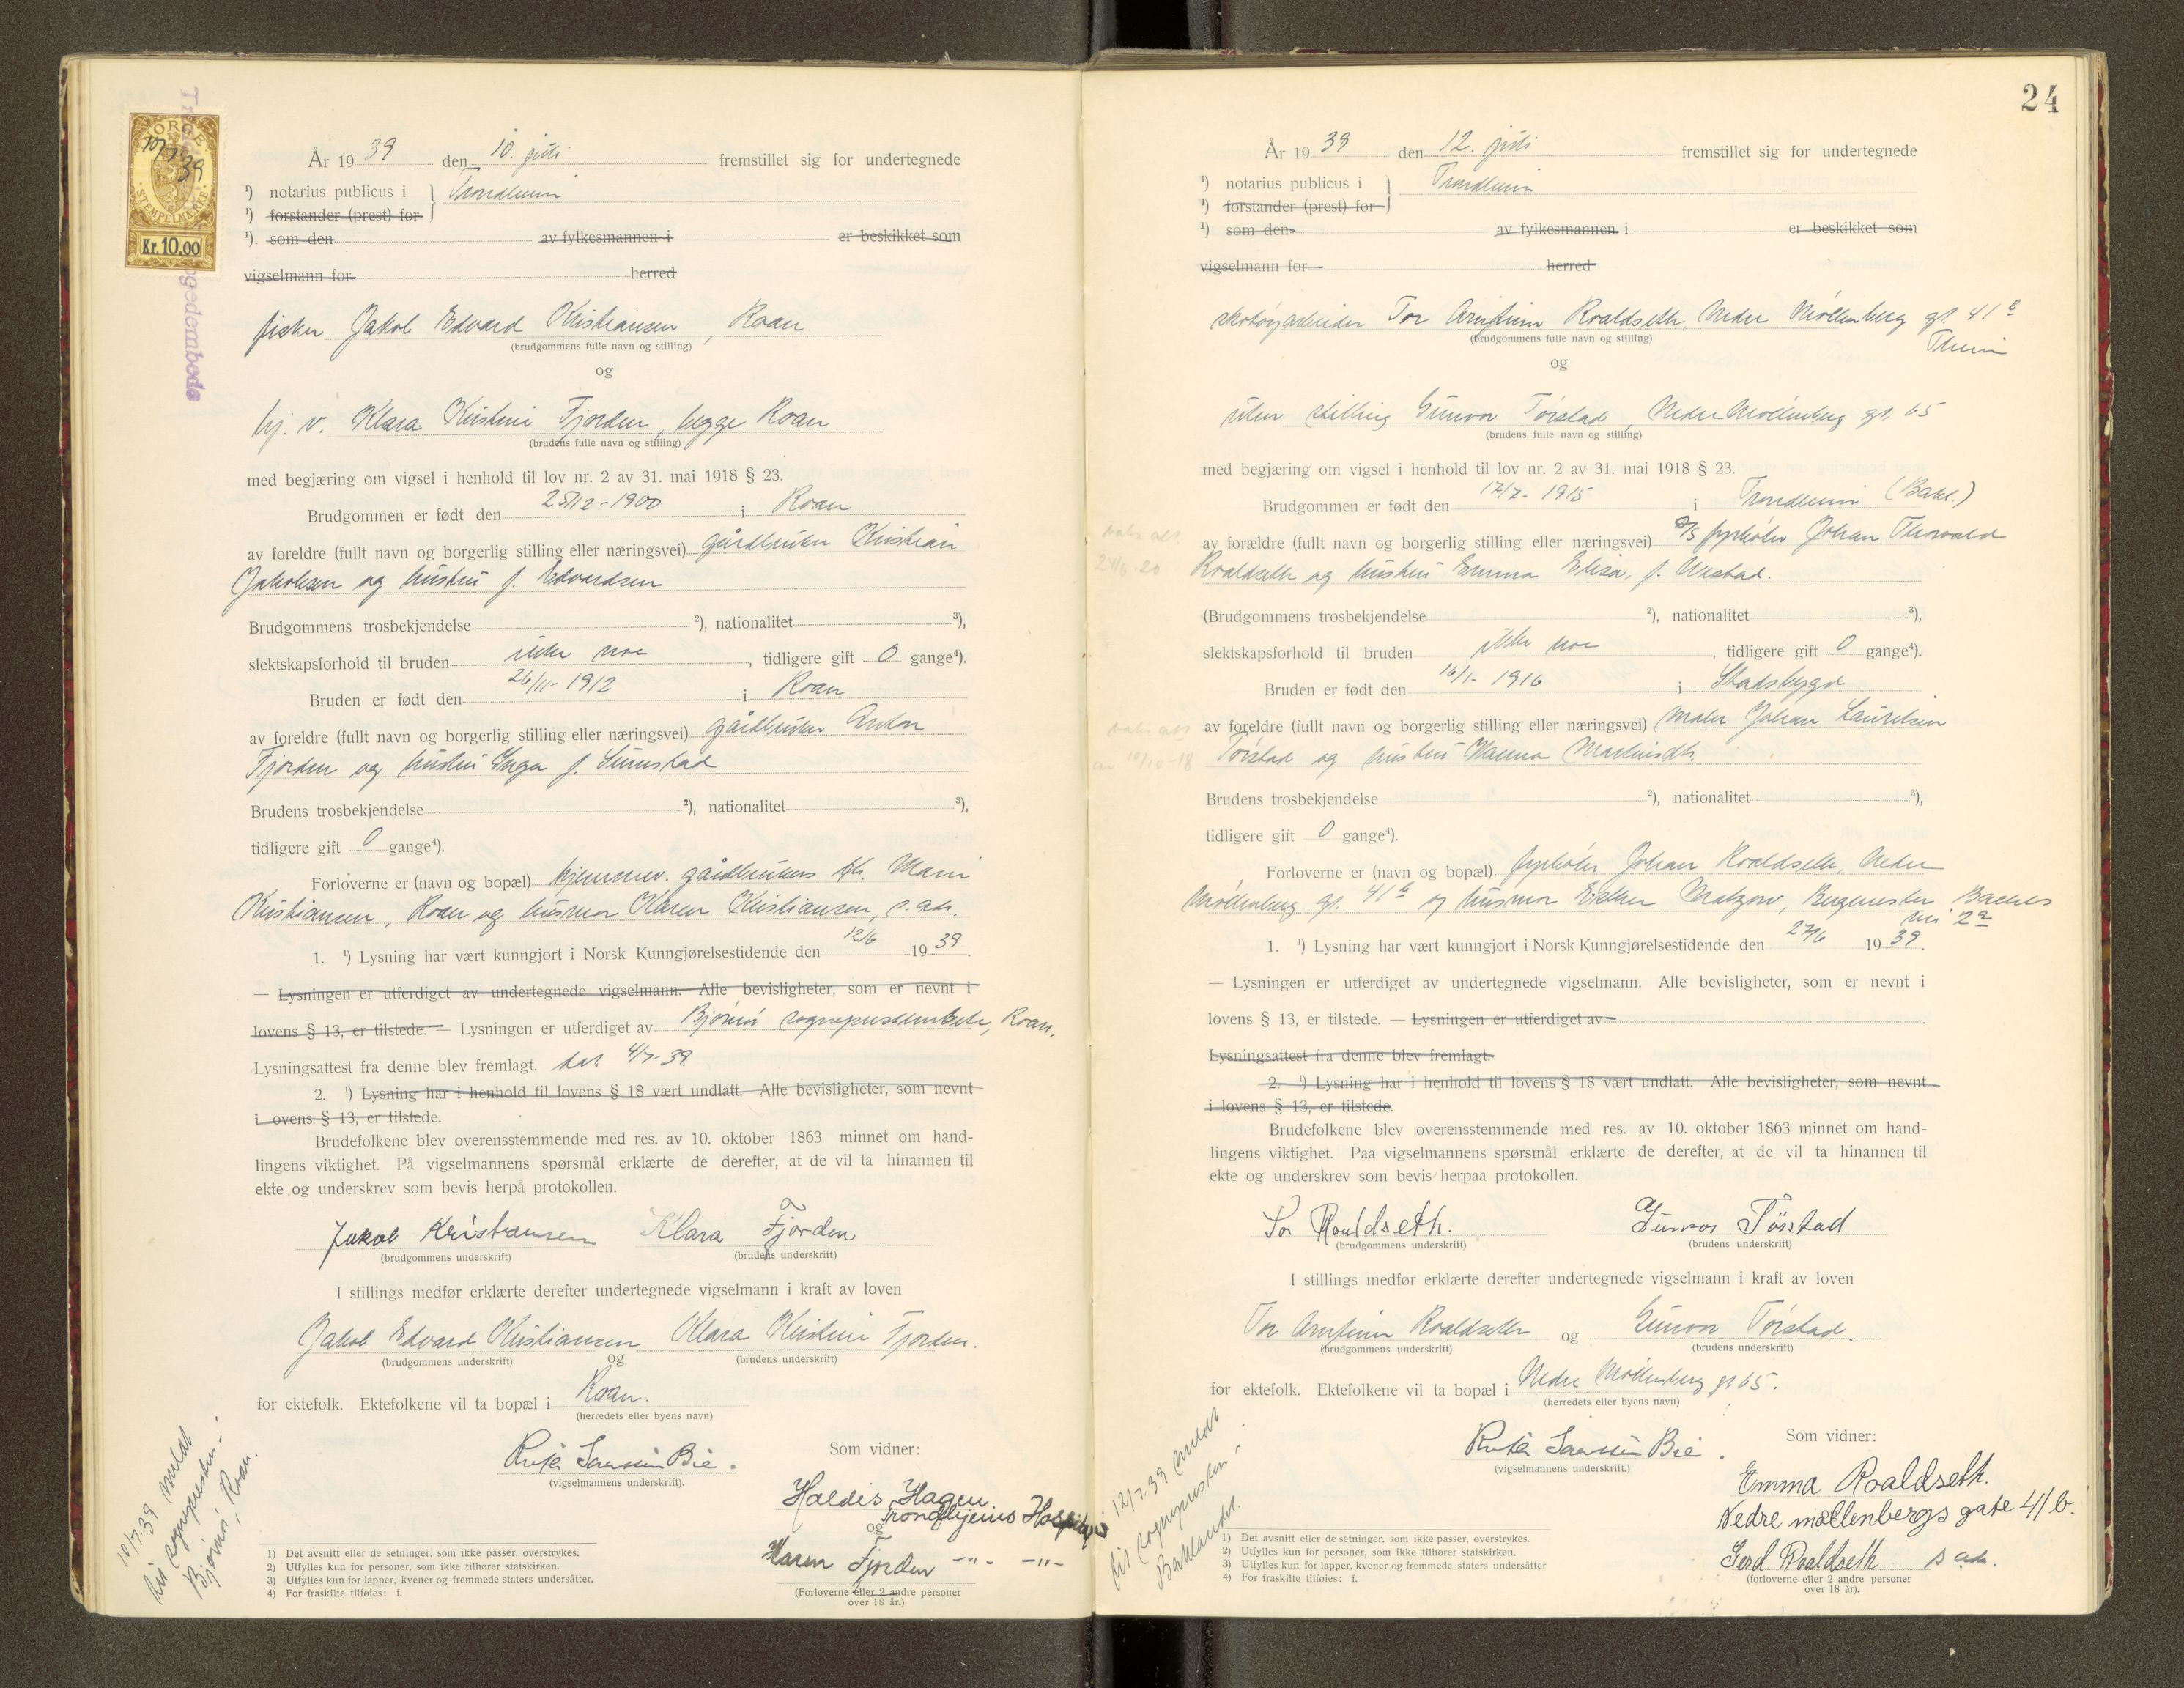 NORGE
10/7 39
STEMPELMERKE
Kr. 10.00
År 19 39 den 10. juli fremstillet sig for undertegnede
¹) notarius publicus i } Trondheim
¹) forstander (prest) for
¹). som den av fylkesmannen i er beskikket som
vigselmann for herred
fisker Jakob Edvard Kristiansen, Roan
(brudgommens fulle navn og stilling)
og
hj. v. Klara Kristine Fjorden, begge Roan
(brudens fulle navn og stilling)
med begjæring om vigsel i henhold til lov nr. 2 av 31. mai 1918 § 23.
Brudgommen er født den 25/12-1900 i Roan
av foreldre (fullt navn og borgerlig stilling eller næringsvei) gårdbruker Kristian
Jakobsen og hustru f. Edvardsen
Brudgommens trosbekjendelse ²), nationalitet ³),
slektskapsforhold til bruden ikke noe, tidligere gift 0 gange⁴).
Bruden er født den 26/11-1912 i Roan
av foreldre (fullt navn og borgerlig stilling eller næringsvei) gårdbruker Anton
Fjorden og hustru Inga f. Sumstad
Brudens trosbekjendelse ²), nationalitet ³),
tidligere gift 0 gange⁴).
Forloverne er (navn og bopæl) hjemmev. gårdbrukers dt. Marie
Kristiansen, Roan og husmor Karen Kristiansen, s. ads.
1. ¹) Lysning har vært kunngjort i Norsk Kunngjørelsestidende den 12/6 19 39.
— Lysningen er utferdiget av undertegnede vigselmann. Alle bevisligheter, som er nevnt i
lovens § 13, er tilstede. — Lysningen er utferdiget av Bjørnør sogneprestembete, Roan.
Lysningsattest fra denne blev fremlagt. dat. 4/7-39.
2. ¹) Lysning har i henhold til lovens § 18 vært undlatt. Alle bevisligheter, som nevnt
i ovens § 13, er tilstede.
Brudefolkene blev overensstemmende med res. av 10. oktober 1863 minnet om hand-
lingens viktighet. På vigselmannens spørsmål erklærte de derefter, at de vil ta hinannen til
ekte og underskrev som bevis herpå protokollen.
Jakob Kristiansen Klara Fjorden
(brudgommens underskrift) (brudens underskrift)
I stillings medfør erklærte derefter undertegnede vigselmann i kraft av loven
Jakob Edvard Kristiansen Klara Kristine Fjorden.
(brudgommens underskrift) og (brudens underskrift)
for ektefolk. Ektefolkene vil ta bopæl i Roan.
(herredets eller byens navn)
Bie.
(vigselmannens underskrift).
Som vidner:
Haldis Hagen
Trondhjems Hospital
og
Karen Fjorden -"- -"-
(Forloverne eller 2 andre personer
over 18 år.)
10/7.39 meldt
til sognepresten i
Bjørnør, Roan.
1) Det avsnitt eller de setninger, som ikke passer, overstrykes.
2) Utfylles kun for personer, som ikke tilhører statskirken.
3) Utfylles kun for lapper, kvener og fremmede staters undersåtter.
4) For fraskilte tilføies: f.
24
År 19 39 den 12. juli fremstillet sig for undertegnede
¹) notarius publicus i } Trondheim
¹) forstander (prest) for
¹) som den av fylkesmannen i er beskikket som
vigselmann for herred
skotøyarbeider Tor Arnfinn Roaldseth, Nedre Møllenberg gt. 41 b
Theim
(brudgommens fulle navn og stilling)
og
uten stilling Gunvor Tørstad, Nedre Møllenberg gt. 65
(brudens fulle navn og stilling)
med begjæring om vigsel i henhold til lov nr. 2 av 31. mai 1918 § 23.
Brudgommen er født den 17/7-1915 i Trondheim (Bakl.)
av forældre (fullt navn og borgerlig stilling eller næringsvei) fyrbøter Johan Thorvald
Roaldseth og hustru Emma Elisa, f.
(Brudgommens trosbekjendelse ²), nationalitet ³),
slektskapsforhold til bruden ikke noe, tidligere gift 0 gange⁴).
Bruden er født den 16/1-1916 i Stadsbygd
av foreldre (fullt navn og borgerlig stilling eller næringsvei) maler Johan Lauritsen
Tørstad og hustru Hanna Martinsdt.
Brudens trosbekjendelse ²), nationalitet ³),
tidligere gift 0 gange⁴).
Forloverne er (navn og bopæl) fyrbøter Johan Roaldseth, Nedre
Møllenberg gt. 41 b og husmor Esther Matzow, Bakke 2a
1. ¹) Lysning har vært kunngjort i Norsk Kunngjørelsestidende den 27/6 19 39.
— Lysningen er utferdiget av undertegnede vigselmann. Alle bevisligheter, som er nevnt i
lovens § 13, er tilstede. — Lysningen er utferdiget av
Lysningsattest fra denne blev fremlagt.
2. ¹) Lysning har i henhold til lovens § 18 vært undlatt. Alle bevisligheter, som nevnt
i lovens § 13, er tilstede.
Brudefolkene blev overensstemmende med res. av 10. oktober 1863 minnet om hand-
lingens viktighet. Paa vigselmannens spørsmål erklærte de derefter, at de vil ta hinannen til
ekte og underskrev som bevis herpaa protokollen.
Tor Roaldseth. Gunvor Tørstad
(brudgommens underskrift) (brudens underskrift)
I stillings medfør erklærte derefter undertegnede vigselmann i kraft av loven
Tor Arnfinn Roaldseth og Gunvor Tørstad.
(brudgommens underskrift) (brudens underskrift)
for ektefolk. Ektefolkene vil ta bopæl i Nedre Møllenberg gt 65.
(herredets eller byens navn)
Bie.
(vigselmannens underskrift.)
Som vidner:
Emma Roaldseth.
Nedre møllenbergs gate 41 b.
Gerd Roaldseth s ads.
(forloverne eller 2 andre personer
over 18 år).
12/7.39 meldt
til sognepresten i
Baklandet.
1) Det avsnitt eller de setninger, som ikke passer, overstrykes.
2) Utfylles kun for personer, som ikke tilhører statskirken.
3) Utfylles kun for lapper, kvener og fremmede staters undersåtter
4) For fraskilte tilføies: f.